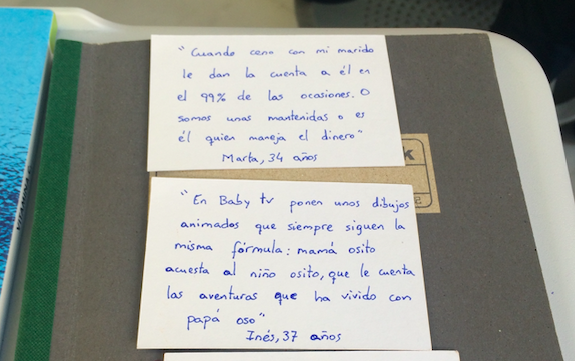 "Cuando ceno con mi marido
le dan la cuenta a él en
el 99% de las ocasiones. O
somos unas mantenidas o es
él quien maneja el dinero"
Marta, 34 años
"En Baby tv ponen unos dibujos
animados que siempre siguen la
misma fórmula: mamá osito
acuesta al niño osito, que le cuenta
las aventuras que ha vivido con
papá oso"
Inés, 37 años